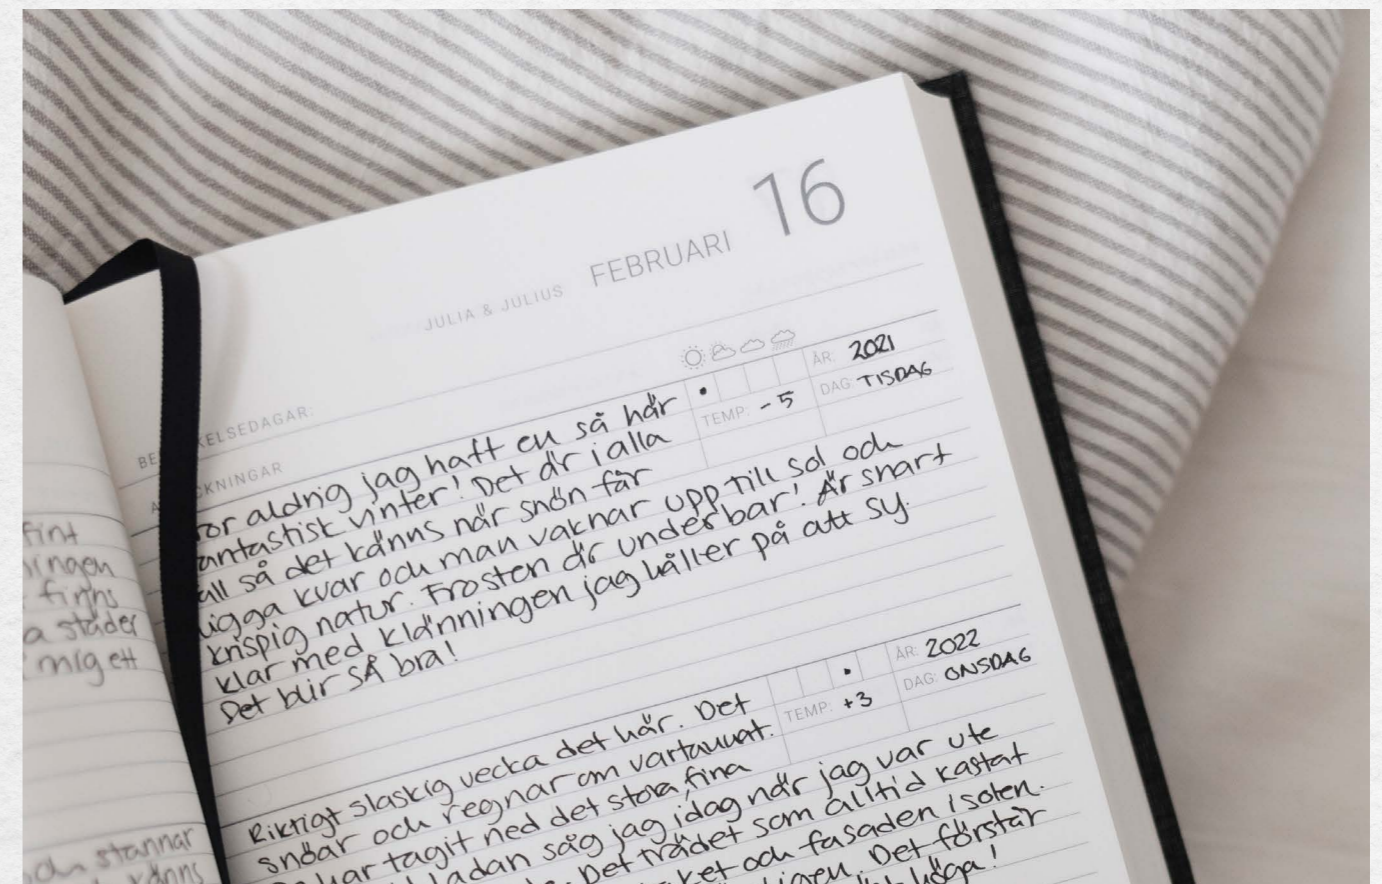 16
FEBRUARI
JULIA & JULIUS
ÅR: 2021
DAG: TISDAG
TEMP: -5
KELSEDAGAR:
CKNINGAR
or aldrig jag haft en så här
antastisk vinter! Det är i alla
all så det känns när snön får
igga kvar och man vaknar upp till sol och
krispig natur. Frosten är underbar! Är snart
klar med klänningen jag håller på att sy.
Det blir SÅ bra!
ÅR: 2022
DAG: ONSDAG
TEMP: +3
Riktigt slaskig vecka det här. Det
snöar och regnar om vartannat.
har tagit ned det stora fina
ladan såg jag idag när jag var ute
Det trädet som alltid kastat
ket och fasaden i solen.
igen. Det förstår
höga!
fint
ingen
finns
a städer
mig ett
och stannar
känns